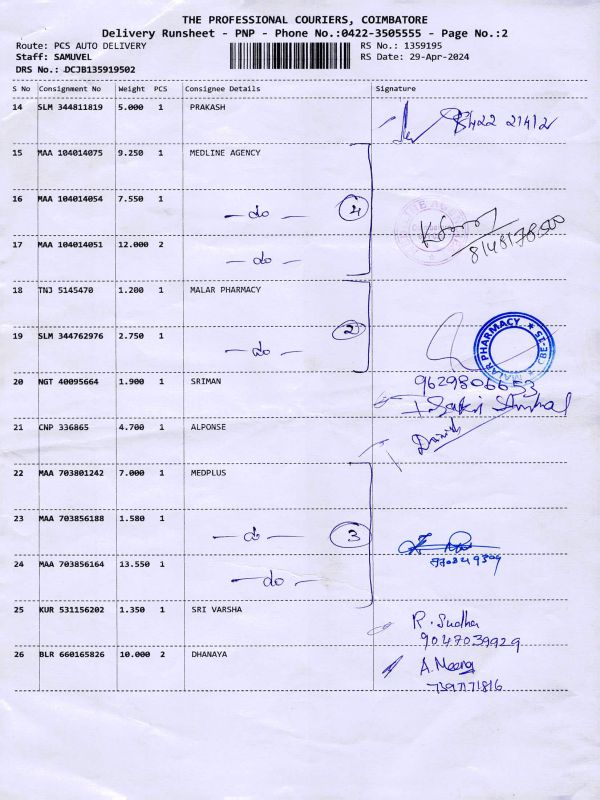 THE PROFESSIONAL COURIERS, COIMBATORE
Delivery Runsheet - PNP - Phone No.:0422-3505555 - Page No.:2
Route: PCS AUTO DELIVERY RS No.: 1359195
Staff: SAMUVEL RS Date: 29-Apr-2024
DRS No.: DCJB135919502
S No Consignment No Weight PCS Consignee Details Signature
14 SLM 344811819 5.000 1 PRAKASH
15 MAA 104014075 9.250 1 MEDLINE AGENCY
16 MAA 104014054 7.550 1 - do - 4
17 MAA 104014051 12.000 2 - do -
18 TNJ 5145470 1.200 1 MALAR PHARMACY
19 SLM 344762976 2.750 1 - do - 2
MALAR PHARMACY
20 NGT 40095664 1.900 1 SRIMAN 9629806653
21 CNP 336865 4.700 1 ALPONSE
22 MAA 703801242 7.000 1 MEDPLUS
23 MAA 703856188 1.580 1 - do - 3
24 MAA 703856164 13.550 1 - do -
25 KUR 531156202 1.350 1 SRI VARSHA R. Sudha
9047039929
26 BLR 660165826 10.000 2 DHANAYA A. Meena
7397171816